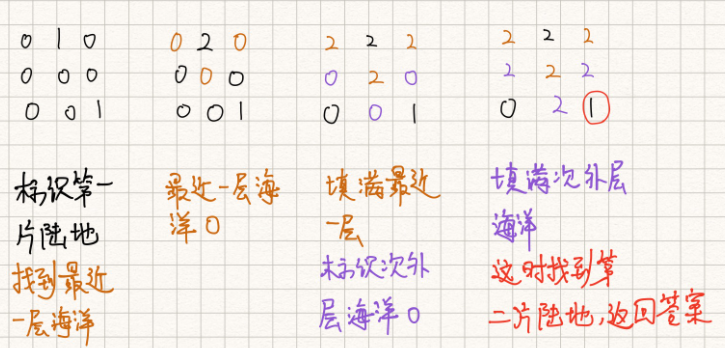 0 1 0
0 0 0
0 0 1
标识第一
片陆地
找到最近
一层海洋
0 2 0
0 0 0
0 0 1
最近一层海
洋0
2 2 2
0 2 0
0 0 1
填满最近
一层
标识次外
层海洋0
2 2 2
2 2 2
0 2 1
填满次外层
海洋
这时找到第
二片陆地,返回答案